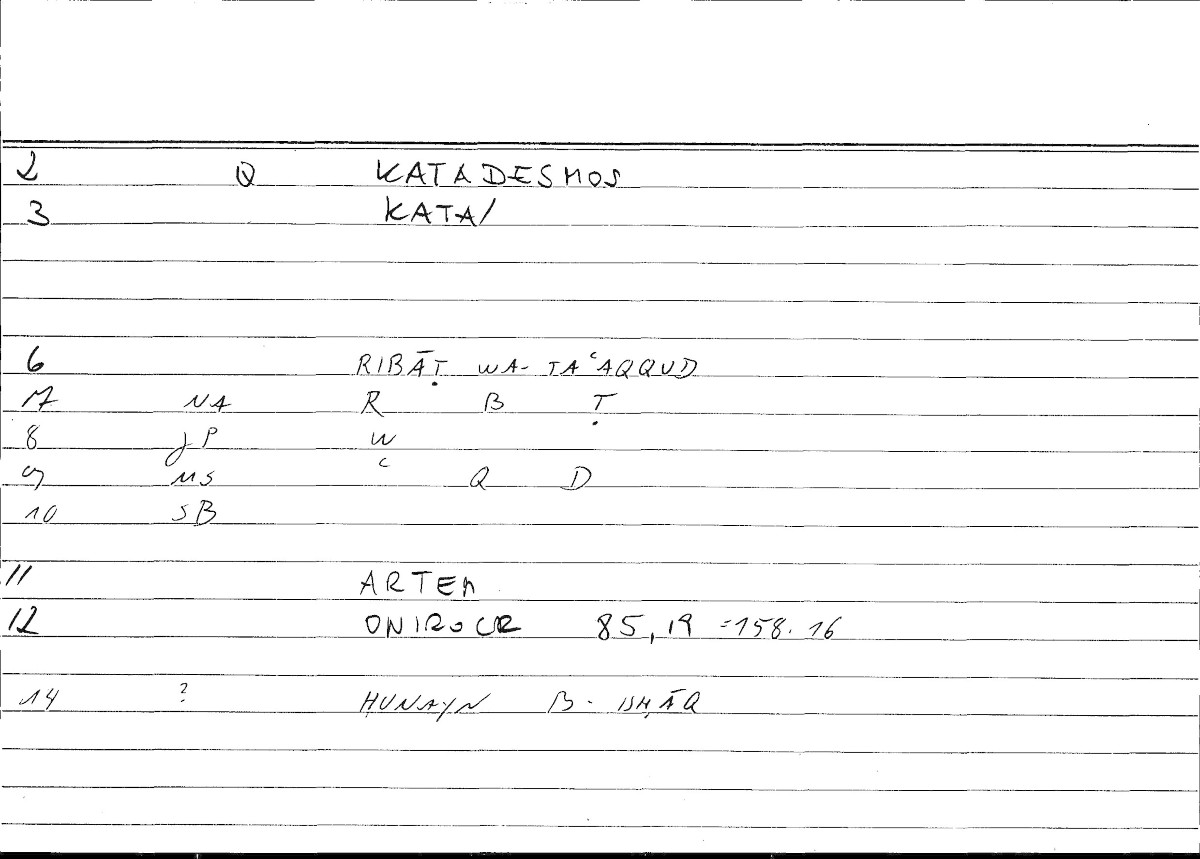 2 Q KATADESMOS
3 KATA/
6 RIBĀṬ WA- TAʿAQQUD
7 NA R B Ṭ
8 JP W
9 MS ʿ Q D
10 SB
11 ARTEM
12 ONIROCR 85,19 =158.16
14 ? ḤUNAYN B. ISḤĀQ